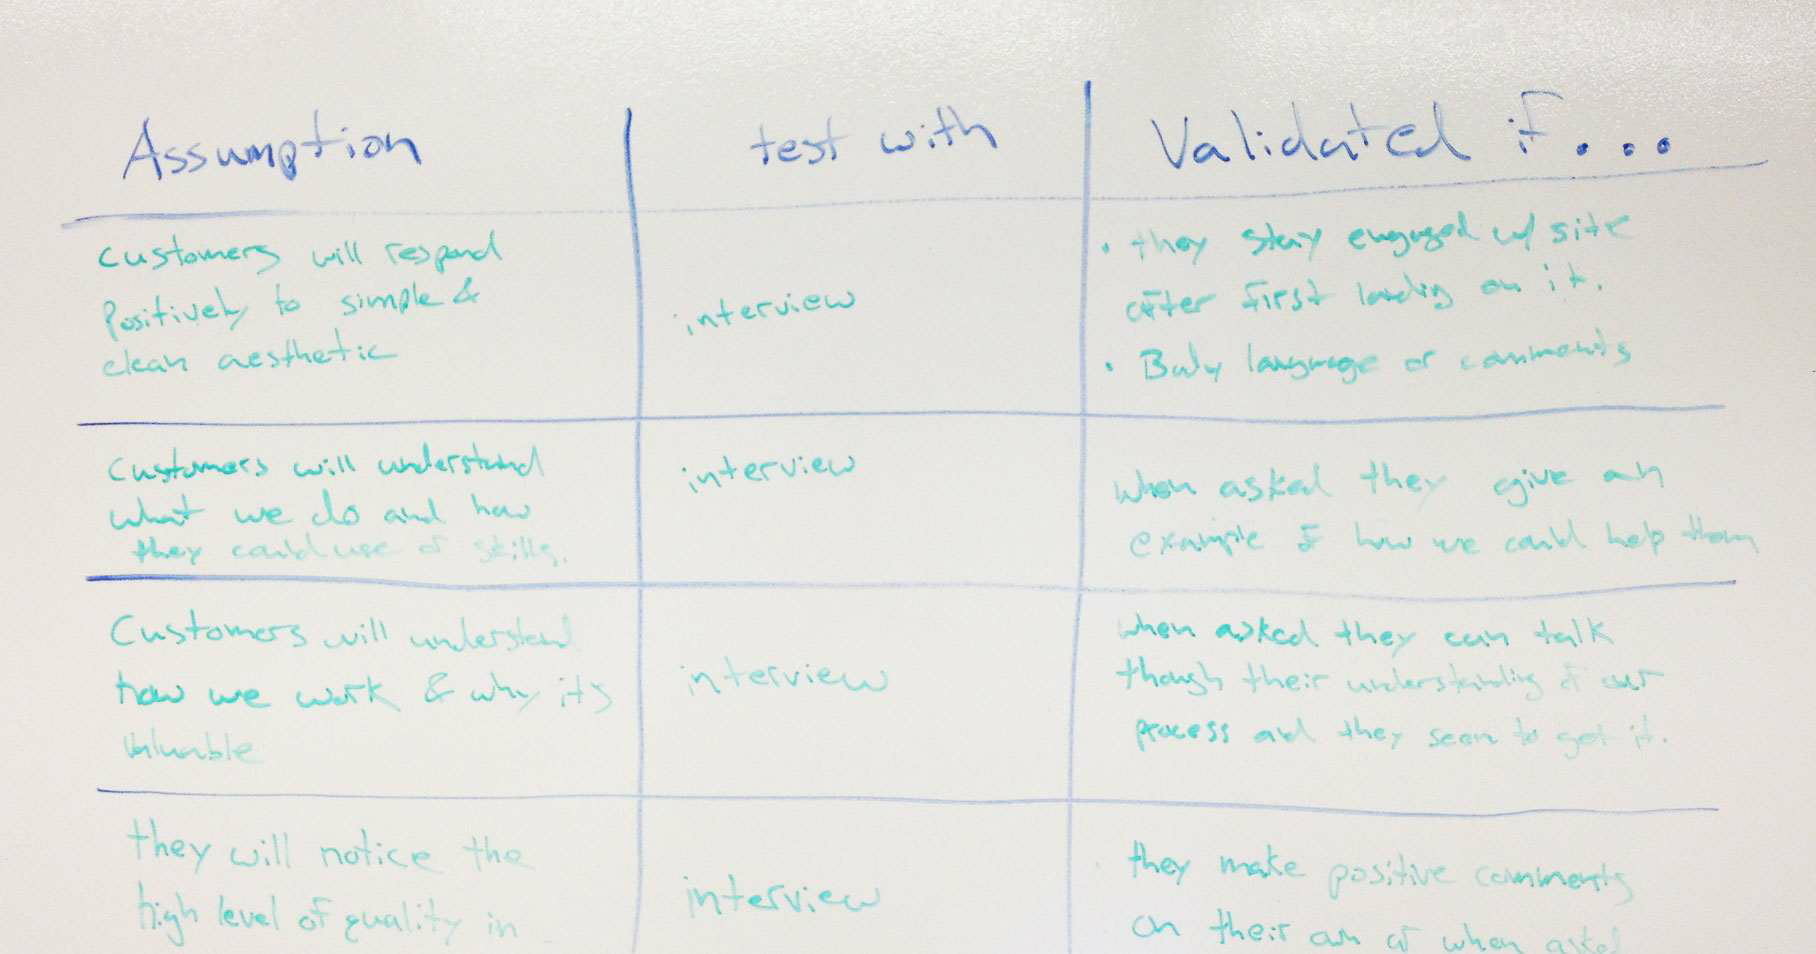 Assumption
test with
Validated if...
Customers will respond
positively to simple &
clean aesthetic
interview
• they stay engaged w/ site
after first landing on it.
• Body language or comments
Customers will understand
what we do and how
they could use or skills.
interview
when asked they give an
example of how we could help them
Customers will understand
how we work & why its
valuable
interview
when asked they can talk
though their understanding of our
process and they seem to get it.
they will notice the
high level of quality in
interview
they make positive comments
on their own or when asked